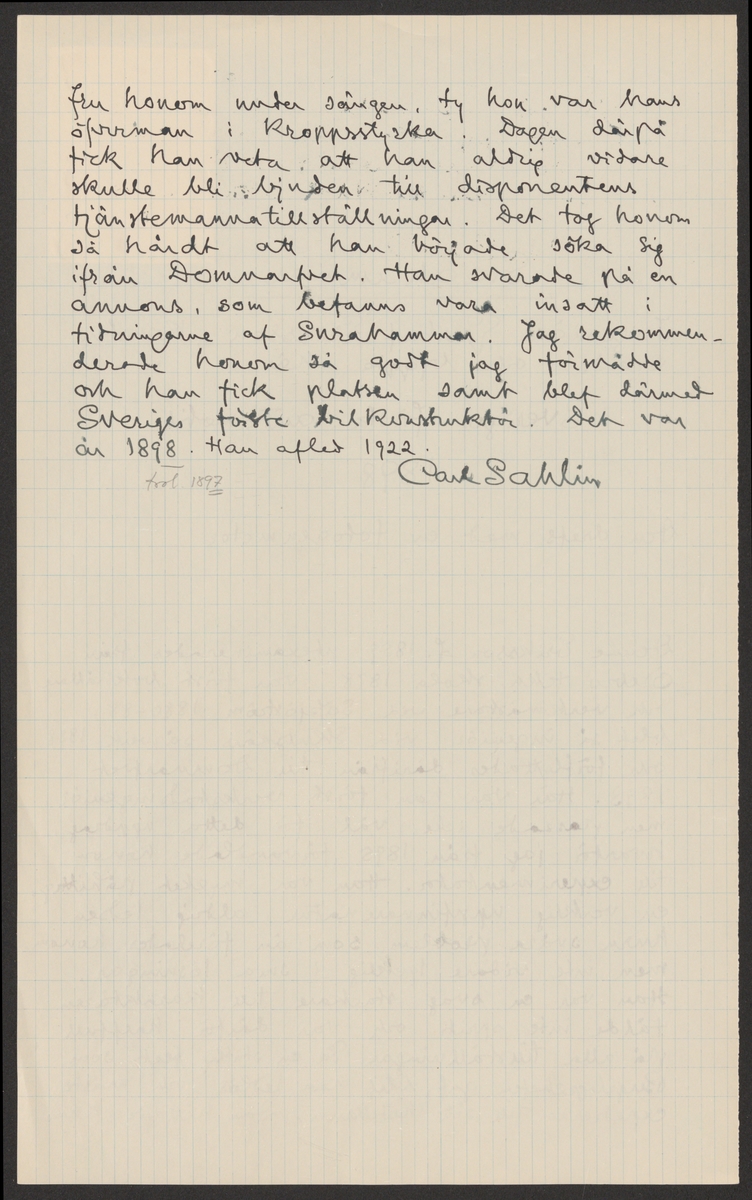 fru honom under sängen, ty hon var hans
öfverman i kroppsstyrka. Dagen därpå
fick han veta att han aldrig vidare
skulle bli bjuden till disponentens
tjänstemannatillställningar. Det tog honom
så hårdt att han började söka sig
ifrån Domnarfvet. Han svarade på en
annons, som befanns vara insatt i
tidningarne af Surahammar. Jag rekommen-
derade honom så godt jag förmådde
och han fick platsen samt blef därmed
Sveriges förste bilkonstruktör. Det var
år 1898. Han afled 1922.
Carl Sahlin
trol 1897